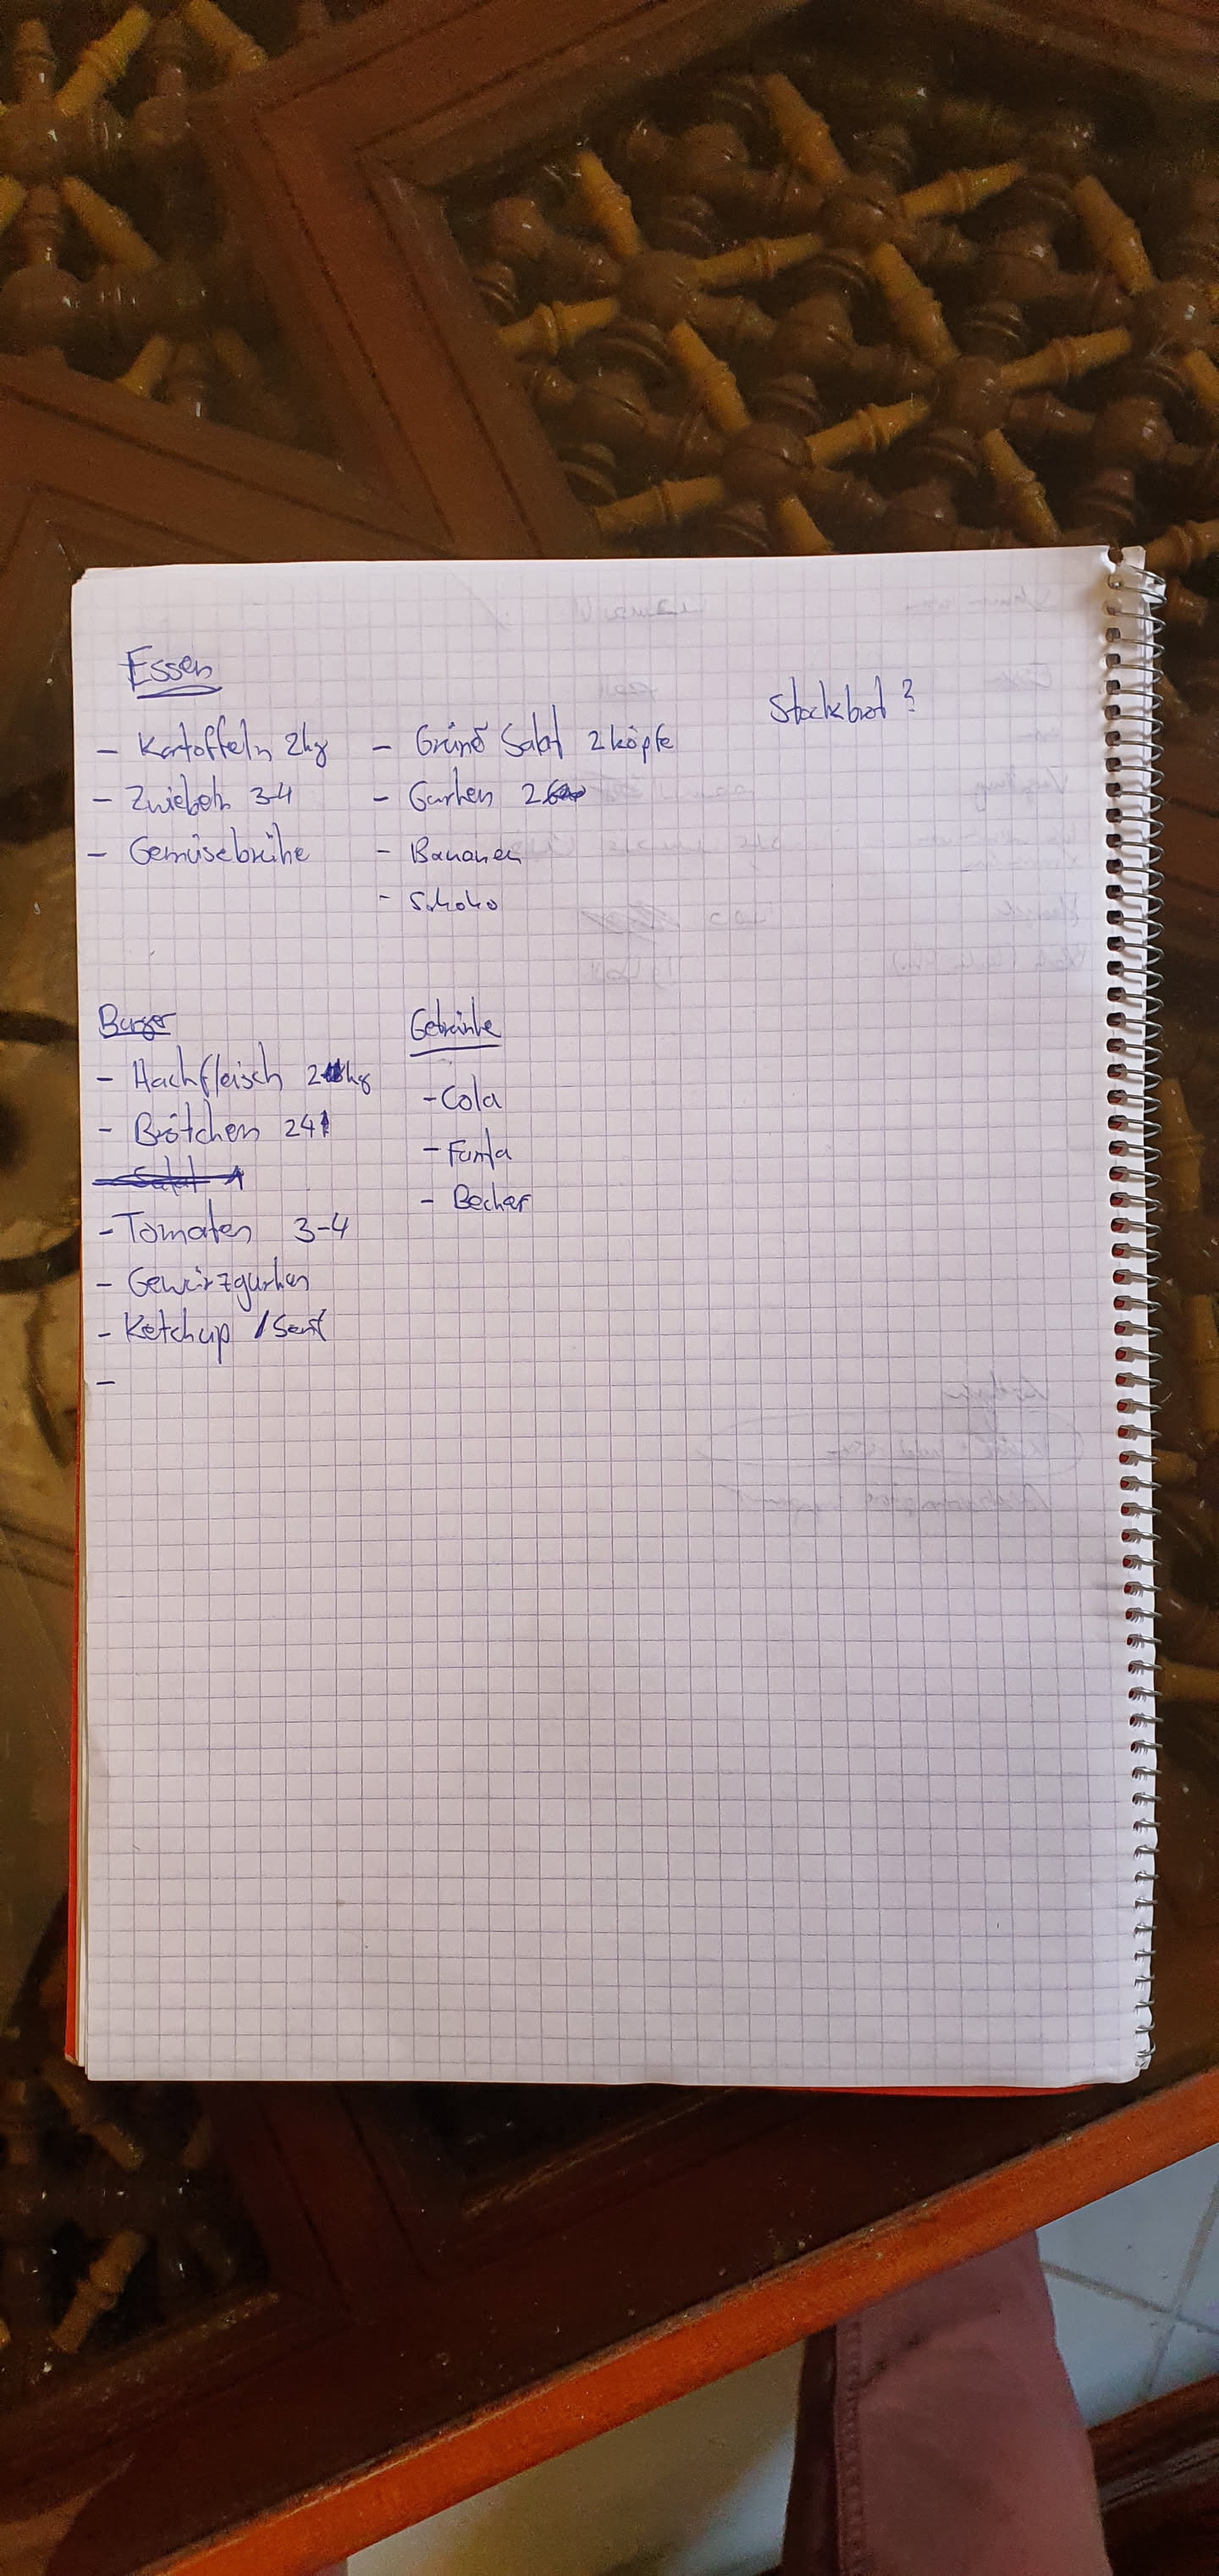 Essen
Stockbrot ?
- Kartoffeln 2kg
- Zwiebeln 3-4
- Gemüsebrühe
- Grüner Salat 2 köpfe
- Gurken 2
- Bananen
- Schoko
Burger
- Hackfleisch 2 kg
- Brötchen 24
- Tomaten 3-4
- Gewürzgurken
- Ketchup / Senf
-
Getränke
- Cola
- Fanta
- Becher